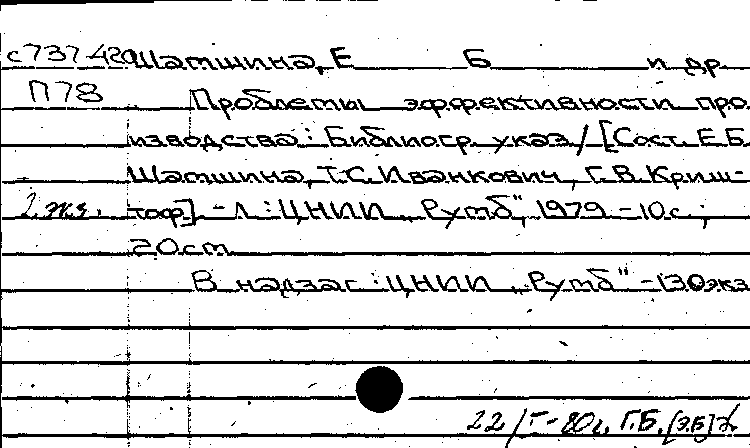 с737-420 Шатшина, Е Б и др.
П78 Проблемы эффективности про
изводства: Библиогр. указ/ [Сост. Е.Б.
Шатшина, Т.С. Иванкович, Г.В. Криш-
2 экз. тоф]. - Л: ЦНИИ „Румб", 1979. - 10 с.;
20 cm
В надзаг: ЦНИИ „Румб" - 130 экз
22/I-80г. Г.Б. [Э.Б]